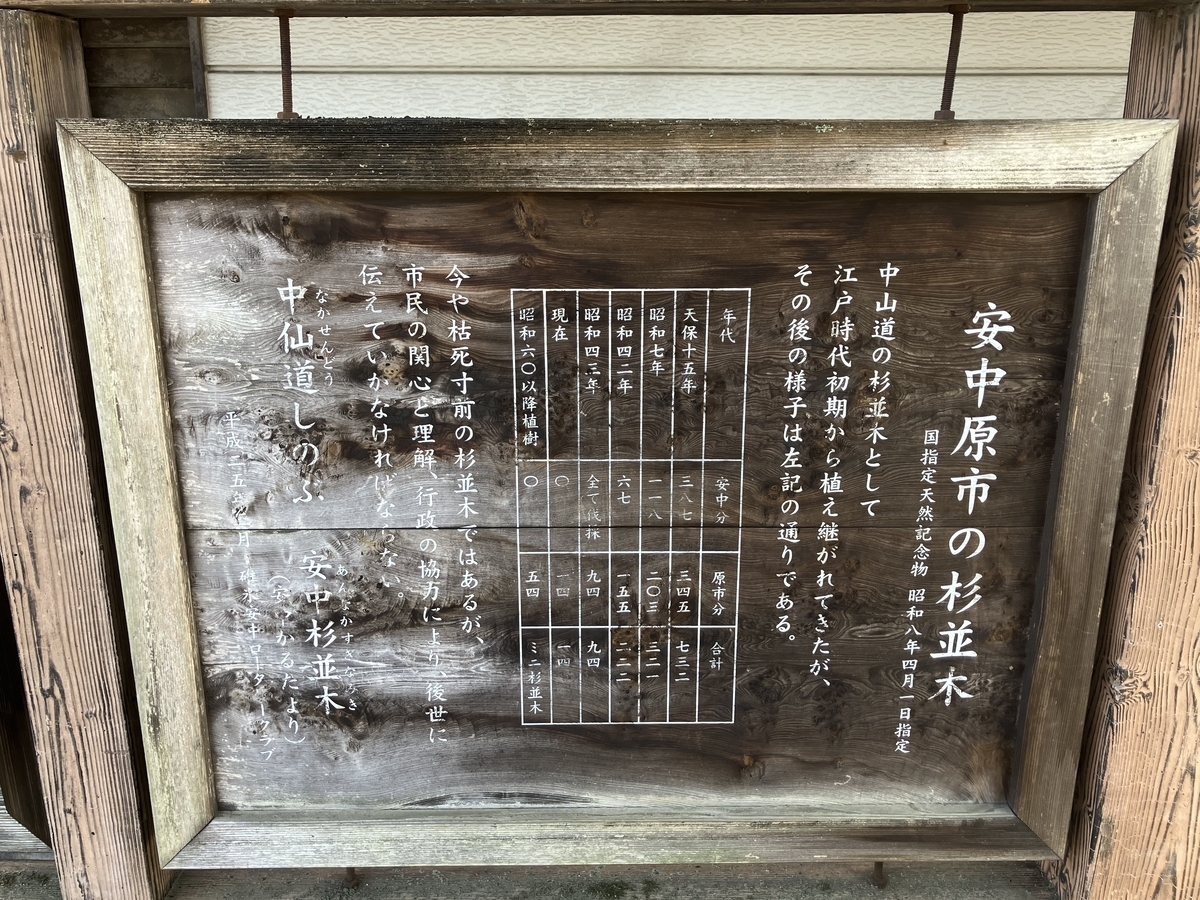 安中原市の杉並木
国指定天然記念物 昭和八年四月一日指定
中山道の杉並木として
江戸時代初期から植え継がれてきたが、
その後の様子は左記の通りである。
年代 安中分 原市分 合計
天保十五年 三八七 三四五 七三二
昭和七年 一一八 二〇三 三二一
昭和四二年 六七 一五五 二二二
昭和四三年 全て伐採 九四 九四
現在 〇 一四 一四
昭和六〇以降植樹 〇 五四 ミニ杉並木
今や枯死寸前の杉並木ではあるが、
市民の関心と理解、行政の協力により、後世に
伝えていかなければならない。
なかせんどう
中仙道しのぶ
安中杉並木
かるたより)
平成二五年 月 碓氷安中ロータリークラブ